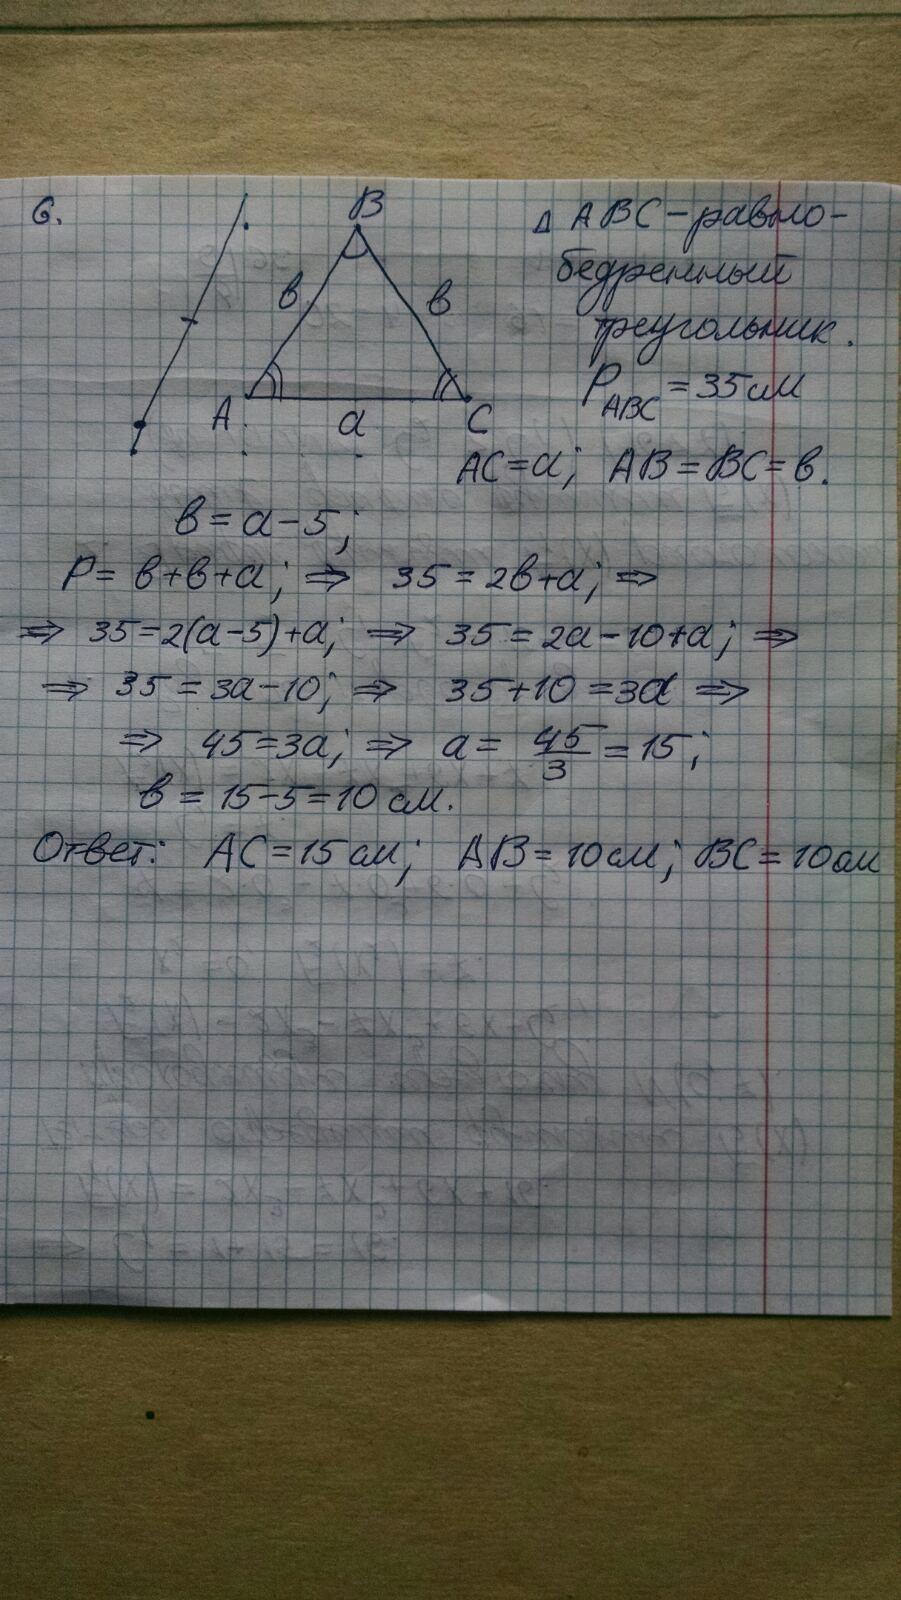 6.
B
в
в
A
a
C
Δ ABC - равно-
бедренный
треугольник.
P_ABC = 35 см
AC = a; AB = BC = в.
в = a - 5;
P = в + в + a; ⇒ 35 = 2в + a; ⇒
⇒ 35 = 2(a - 5) + a; ⇒ 35 = 2a - 10 + a; ⇒
⇒ 35 = 3a - 10; ⇒ 35 + 10 = 3a ⇒
⇒ 45 = 3a; ⇒ a = 45/3 = 15;
в = 15 - 5 = 10 см.
Ответ: AC = 15 см; AB = 10 см; BC = 10 см